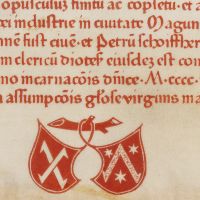 opusculuz finitu ac copletu. et a
ei industrie in ciuitate Magun
nē fust ciuē. et Petrū schoiffher
m clericū dioteſ eiuſdez est con
no incarnacōis dn̄ice. M. cccc.
assumpcōis gl̄ose virginis ma